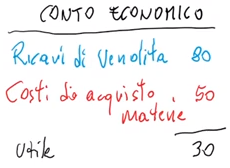 CONTO ECONOMICO
Ricavi di Vendita 80
Costi di acquisto 50
materie
Utile 30